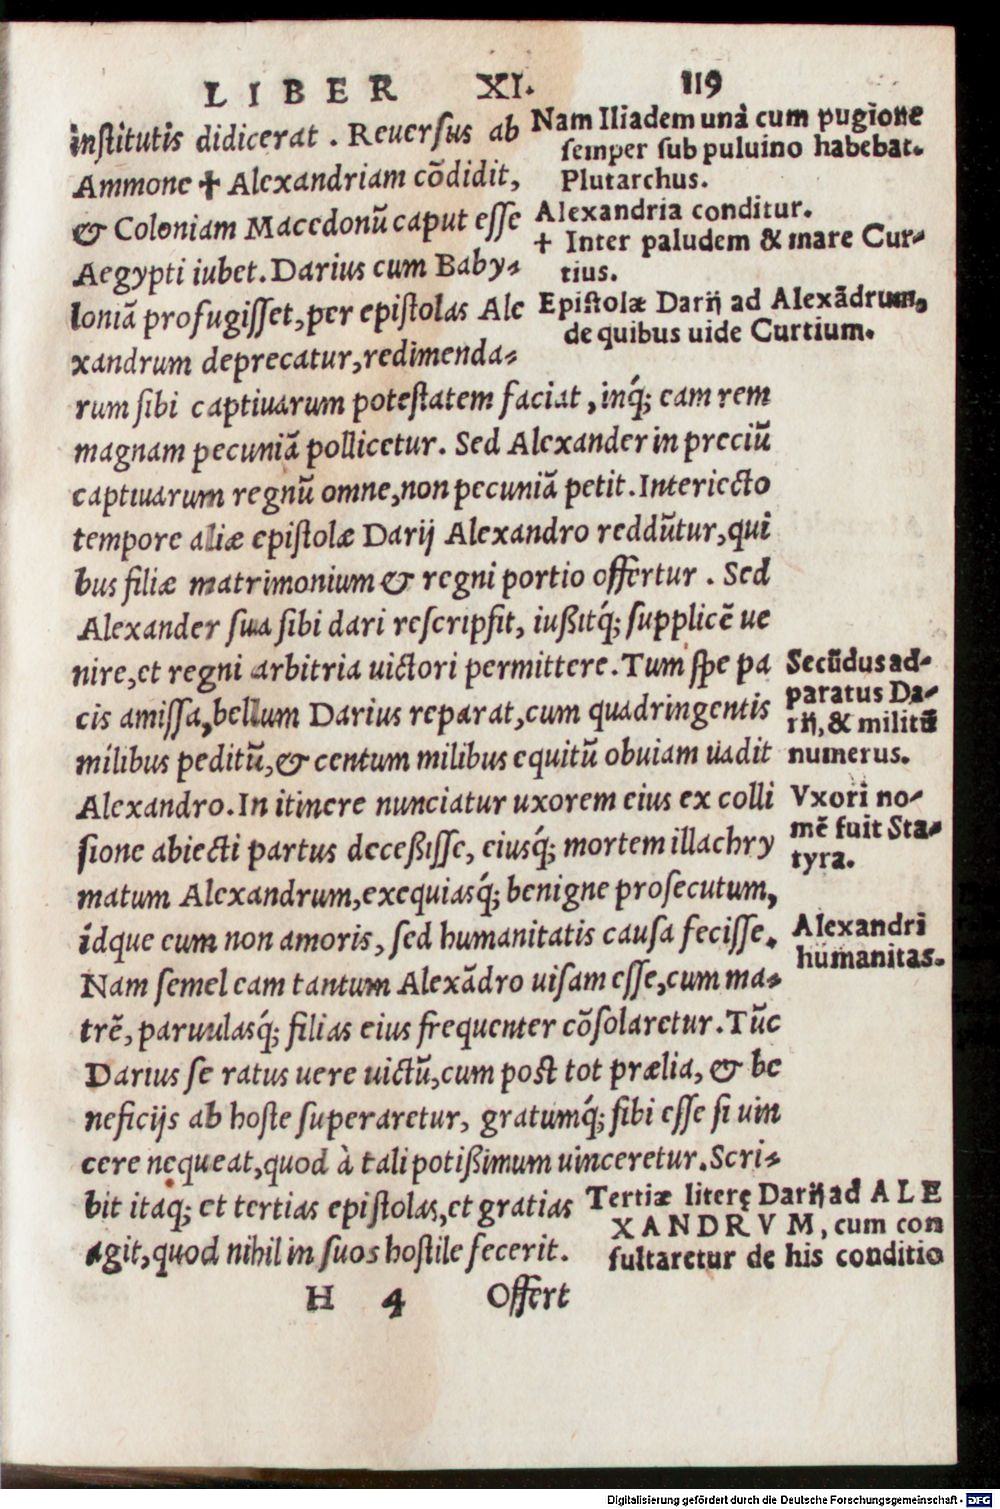 LIBER XI. 119
institutis didicerat. Reuersus ab
Ammone ✝ Alexandriam cōdidit,
& Coloniam Macedonū caput esse
Aegypti iubet. Darius cum Baby-
loniā profugisset, per epistolas Ale
xandrum deprecatur, redimenda-
rum sibi captiuarum potestatem faciat, inq́; eam rem
magnam pecuniā pollicetur. Sed Alexander in preciū
captiuarum regnū omne, non pecuniā petit. Interiecto
tempore aliæ epistolæ Darij Alexandro reddūtur, qui
bus filiæ matrimonium & regni portio offertur. Sed
Alexander sua sibi dari rescripsit, iußitq́; supplicē ue
nire, et regni arbitria uictori permittere. Tum spe pa
cis amissa, bellum Darius reparat, cum quadringentis
milibus peditū, & centum milibus equitū obuiam uadit
Alexandro. In itinere nunciatur uxorem eius ex colli
sione abiecti partus deceßisse, eiusq́; mortem illachry
matum Alexandrum, exequiasq́; benigne prosecutum,
idque eum non amoris, sed humanitatis causa fecisse.
Nam semel eam tantum Alexādro uisam esse, cum ma-
trē, paruulasq́; filias eius frequenter cōsolaretur. Tūc
Darius se ratus uere uictū, cum post tot prælia, & be
neficijs ab hoste superaretur, gratumq́; sibi esse si uin
cere nequeat, quod à tali potißimum uinceretur. Scri-
bit itaq; et tertias epistolas, et gratias
agit, quod nihil in suos hostile fecerit.
H 4 Offert
Nam Iliadem unà cum pugione
semper sub puluino habebat.
Plutarchus.
Alexandria conditur.
✝ Inter paludem & mare Cur-
tius.
Epistolæ Darij ad Alexādrum,
de quibus uide Curtium.
Secūdus ad-
paratus Da-
rij, & militū
numerus.
Vxori no-
mē fuit Sta-
tyra.
Alexandri
humanitas.
Tertiæ literę Darij ad ALE
XANDRVM, cum con
sultaretur de his conditio
Digitalisierung gefördert durch die Deutsche Forschungsgemeinschaft - DFG